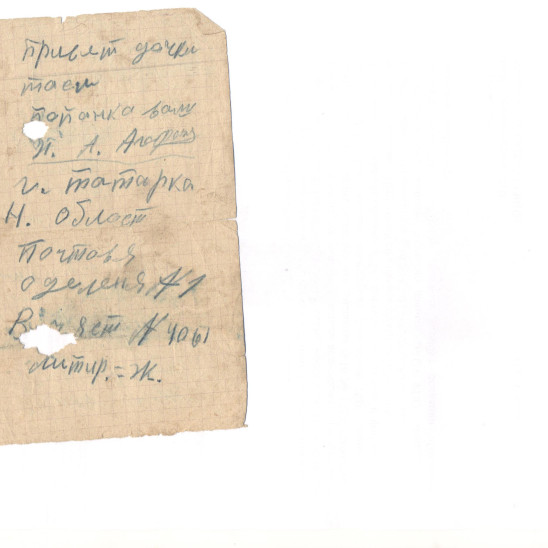 привет дочки
таси
попанка вашу
П. А. Агафон
г. татарка
Н. област
Почтовя
оделеня №1
В ч яст № 4061
литир. = Ж.